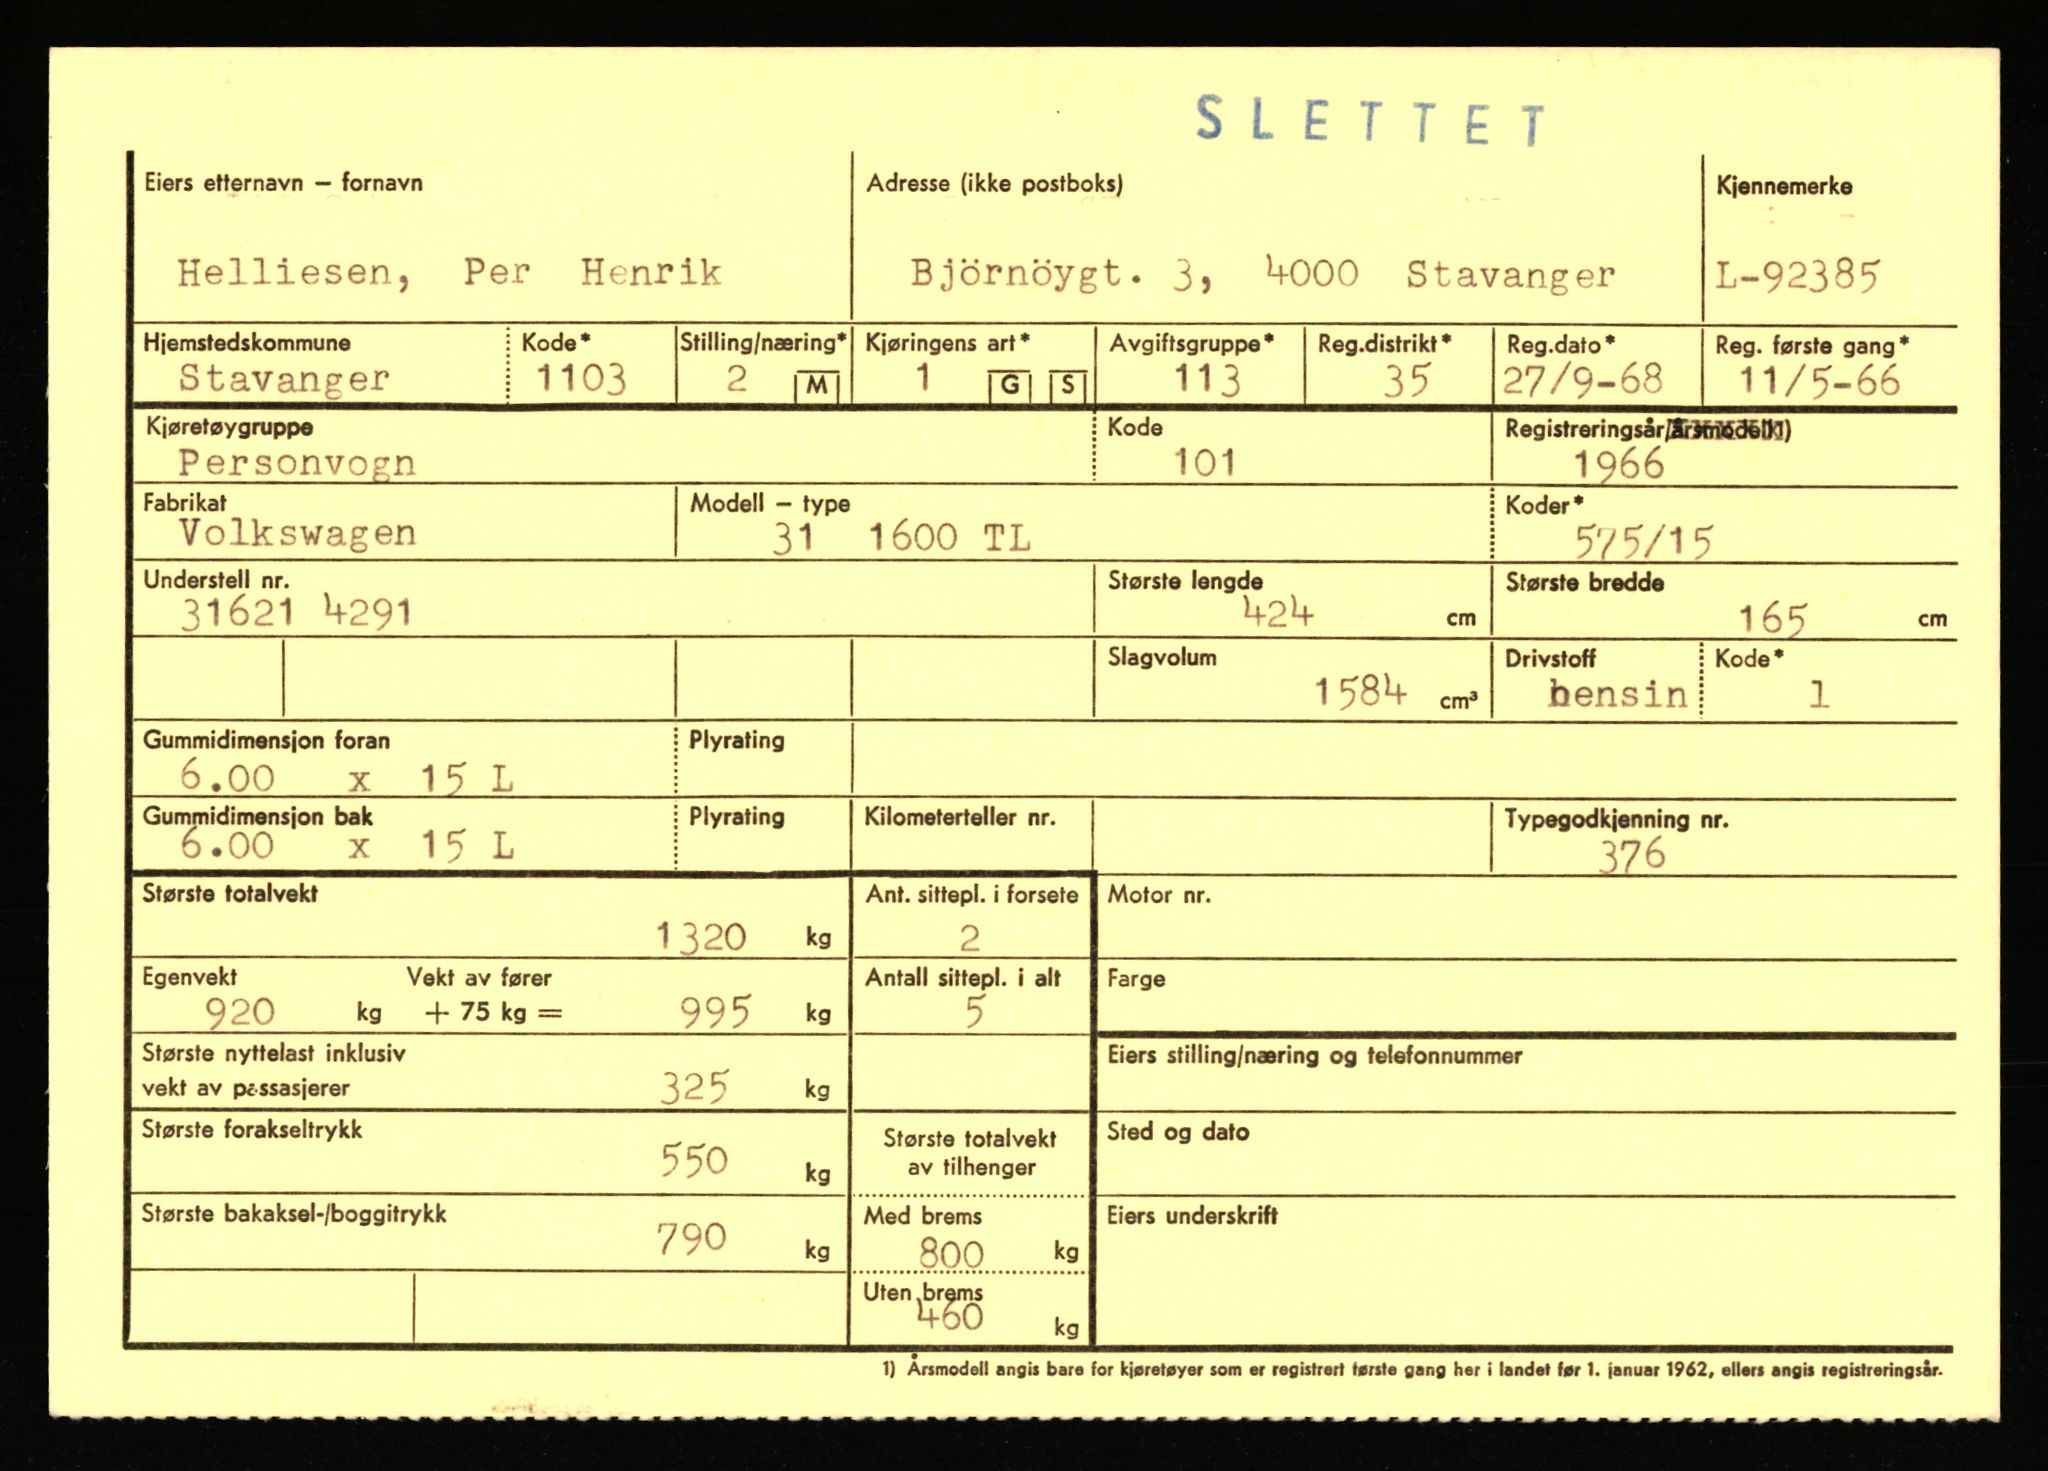 SLETTET
Eiers etternavn – fornavn
Helliesen, Per Henrik
Adresse (ikke postboks)
Björnöygt. 3, 4000 Stavanger
Kjennemerke
L-92385
Hjemstedskommune
Stavanger
Kode*
1103
Stilling/næring*
2 M
Kjøringens art*
1 G S
Avgiftsgruppe*
113
Reg.distrikt*
35
Reg.dato*
27/9-68
Reg. første gang*
11/5-66
Kjøretøygruppe
Personvogn
Kode
101
Registreringsår/årsmodell1)
1966
Fabrikat
Volkswagen
Modell – type
31 1600 TL
Koder*
575/15
Understell nr.
31621 4291
Største lengde
424 cm
Største bredde
165 cm
Slagvolum
1584 cm³
Drivstoff
bensin
Kode*
1
Gummidimensjon foran
6.00 x 15 L
Plyrating
Gummidimensjon bak
6.00 x 15 L
Plyrating
Kilometerteller nr.
Typegodkjenning nr.
376
Største totalvekt
1320 kg
Ant. sittepl. i forsete
2
Motor nr.
Egenvekt
920 kg
Vekt av fører
+ 75 kg = 995 kg
Antall sittepl. i alt
5
Farge
Største nyttelast inklusiv
vekt av passasjerer
325 kg
Eiers stilling/næring og telefonnummer
Største forakseltrykk
550 kg
Største totalvekt
av tilhenger
Sted og dato
Største bakaksel-/boggitrykk
790 kg
Med brems
800 kg
Eiers underskrift
Uten brems
460 kg
1) Årsmodell angis bare for kjøretøyer som er registrert første gang her i landet før 1. januar 1962, ellers angis registreringsår.